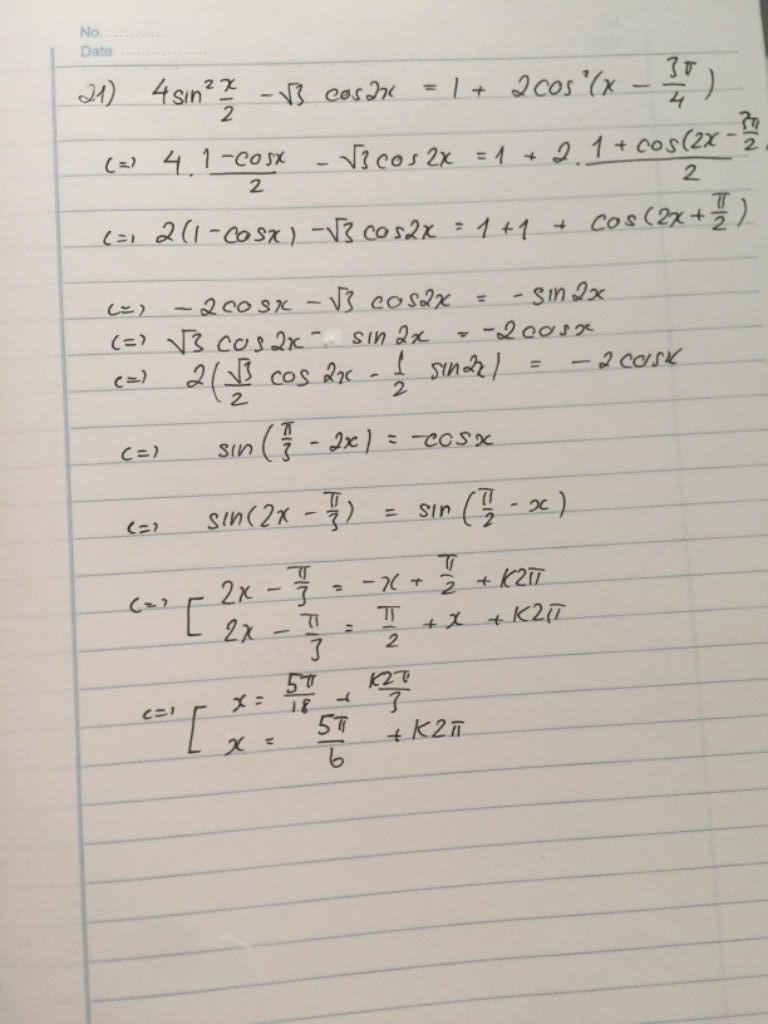 No. ............
Date ..................
21) 4sin² x/2 - √3 cos2x = 1 + 2cos²(x - 3π/4)
<=> 4. (1-cosx)/2 - √3cos2x = 1 + 2. (1+cos(2x - 3π/2))/2
<=> 2(1-cosx) - √3cos2x = 1+1 + cos(2x+π/2)
<=> -2cosx - √3 cos2x = -sin2x
<=> √3 cos2x - sin2x = -2cosx
<=> 2(√3/2 cos 2x - 1/2 sin2x) = -2cosx
<=> sin(π/3 - 2x) = -cosx
<=> sin(2x - π/3) = sin(π/2 - x)
<=> [ 2x - π/3 = -x + π/2 + K2π
2x - π/3 = π/2 + x + K2π
<=> [ x = 5π/18 + K2π/3
x = 5π/6 + K2π